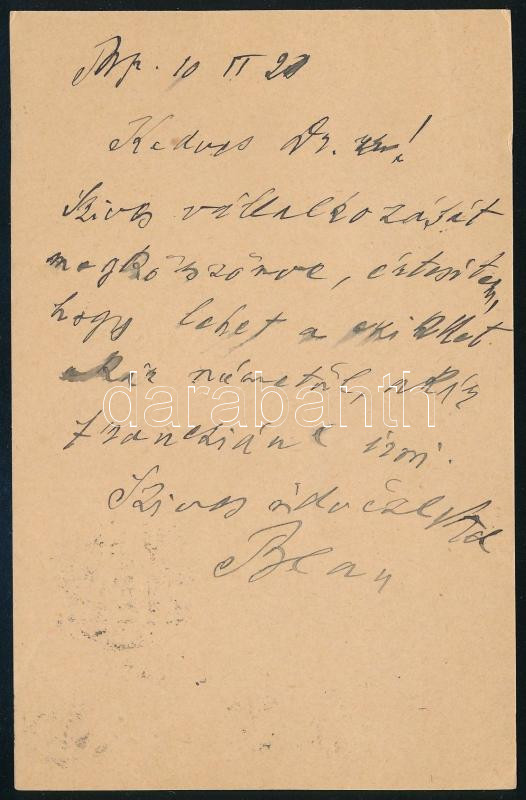 Bp. 10 II 21
Kedves Dr. úr!
Szives vállalkozását
megköszönve, értesitem,
hogy lehet a cikkket
akár németül, akár
francziául írni.
Szives üdvözlettel
Blau
darabanth